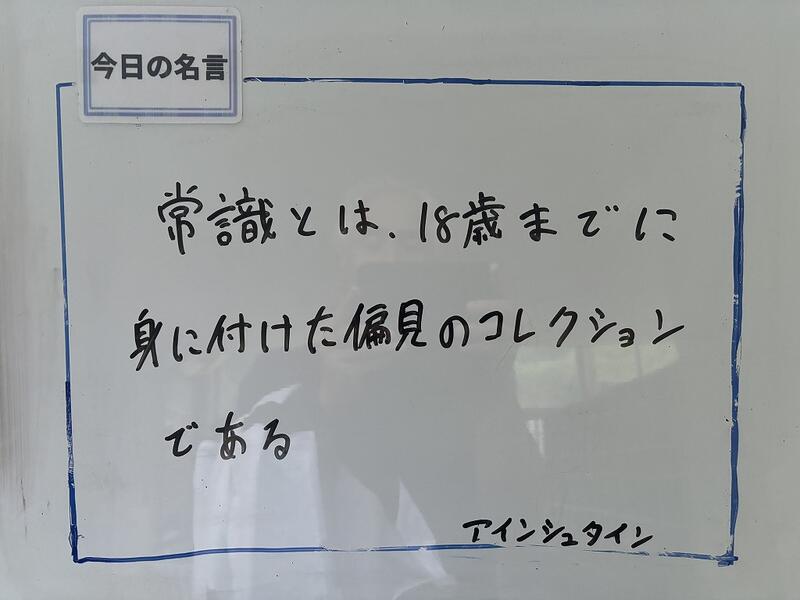 今日の名言
常識とは、18歳までに
身に付けた偏見のコレクション
である
アインシュタイン